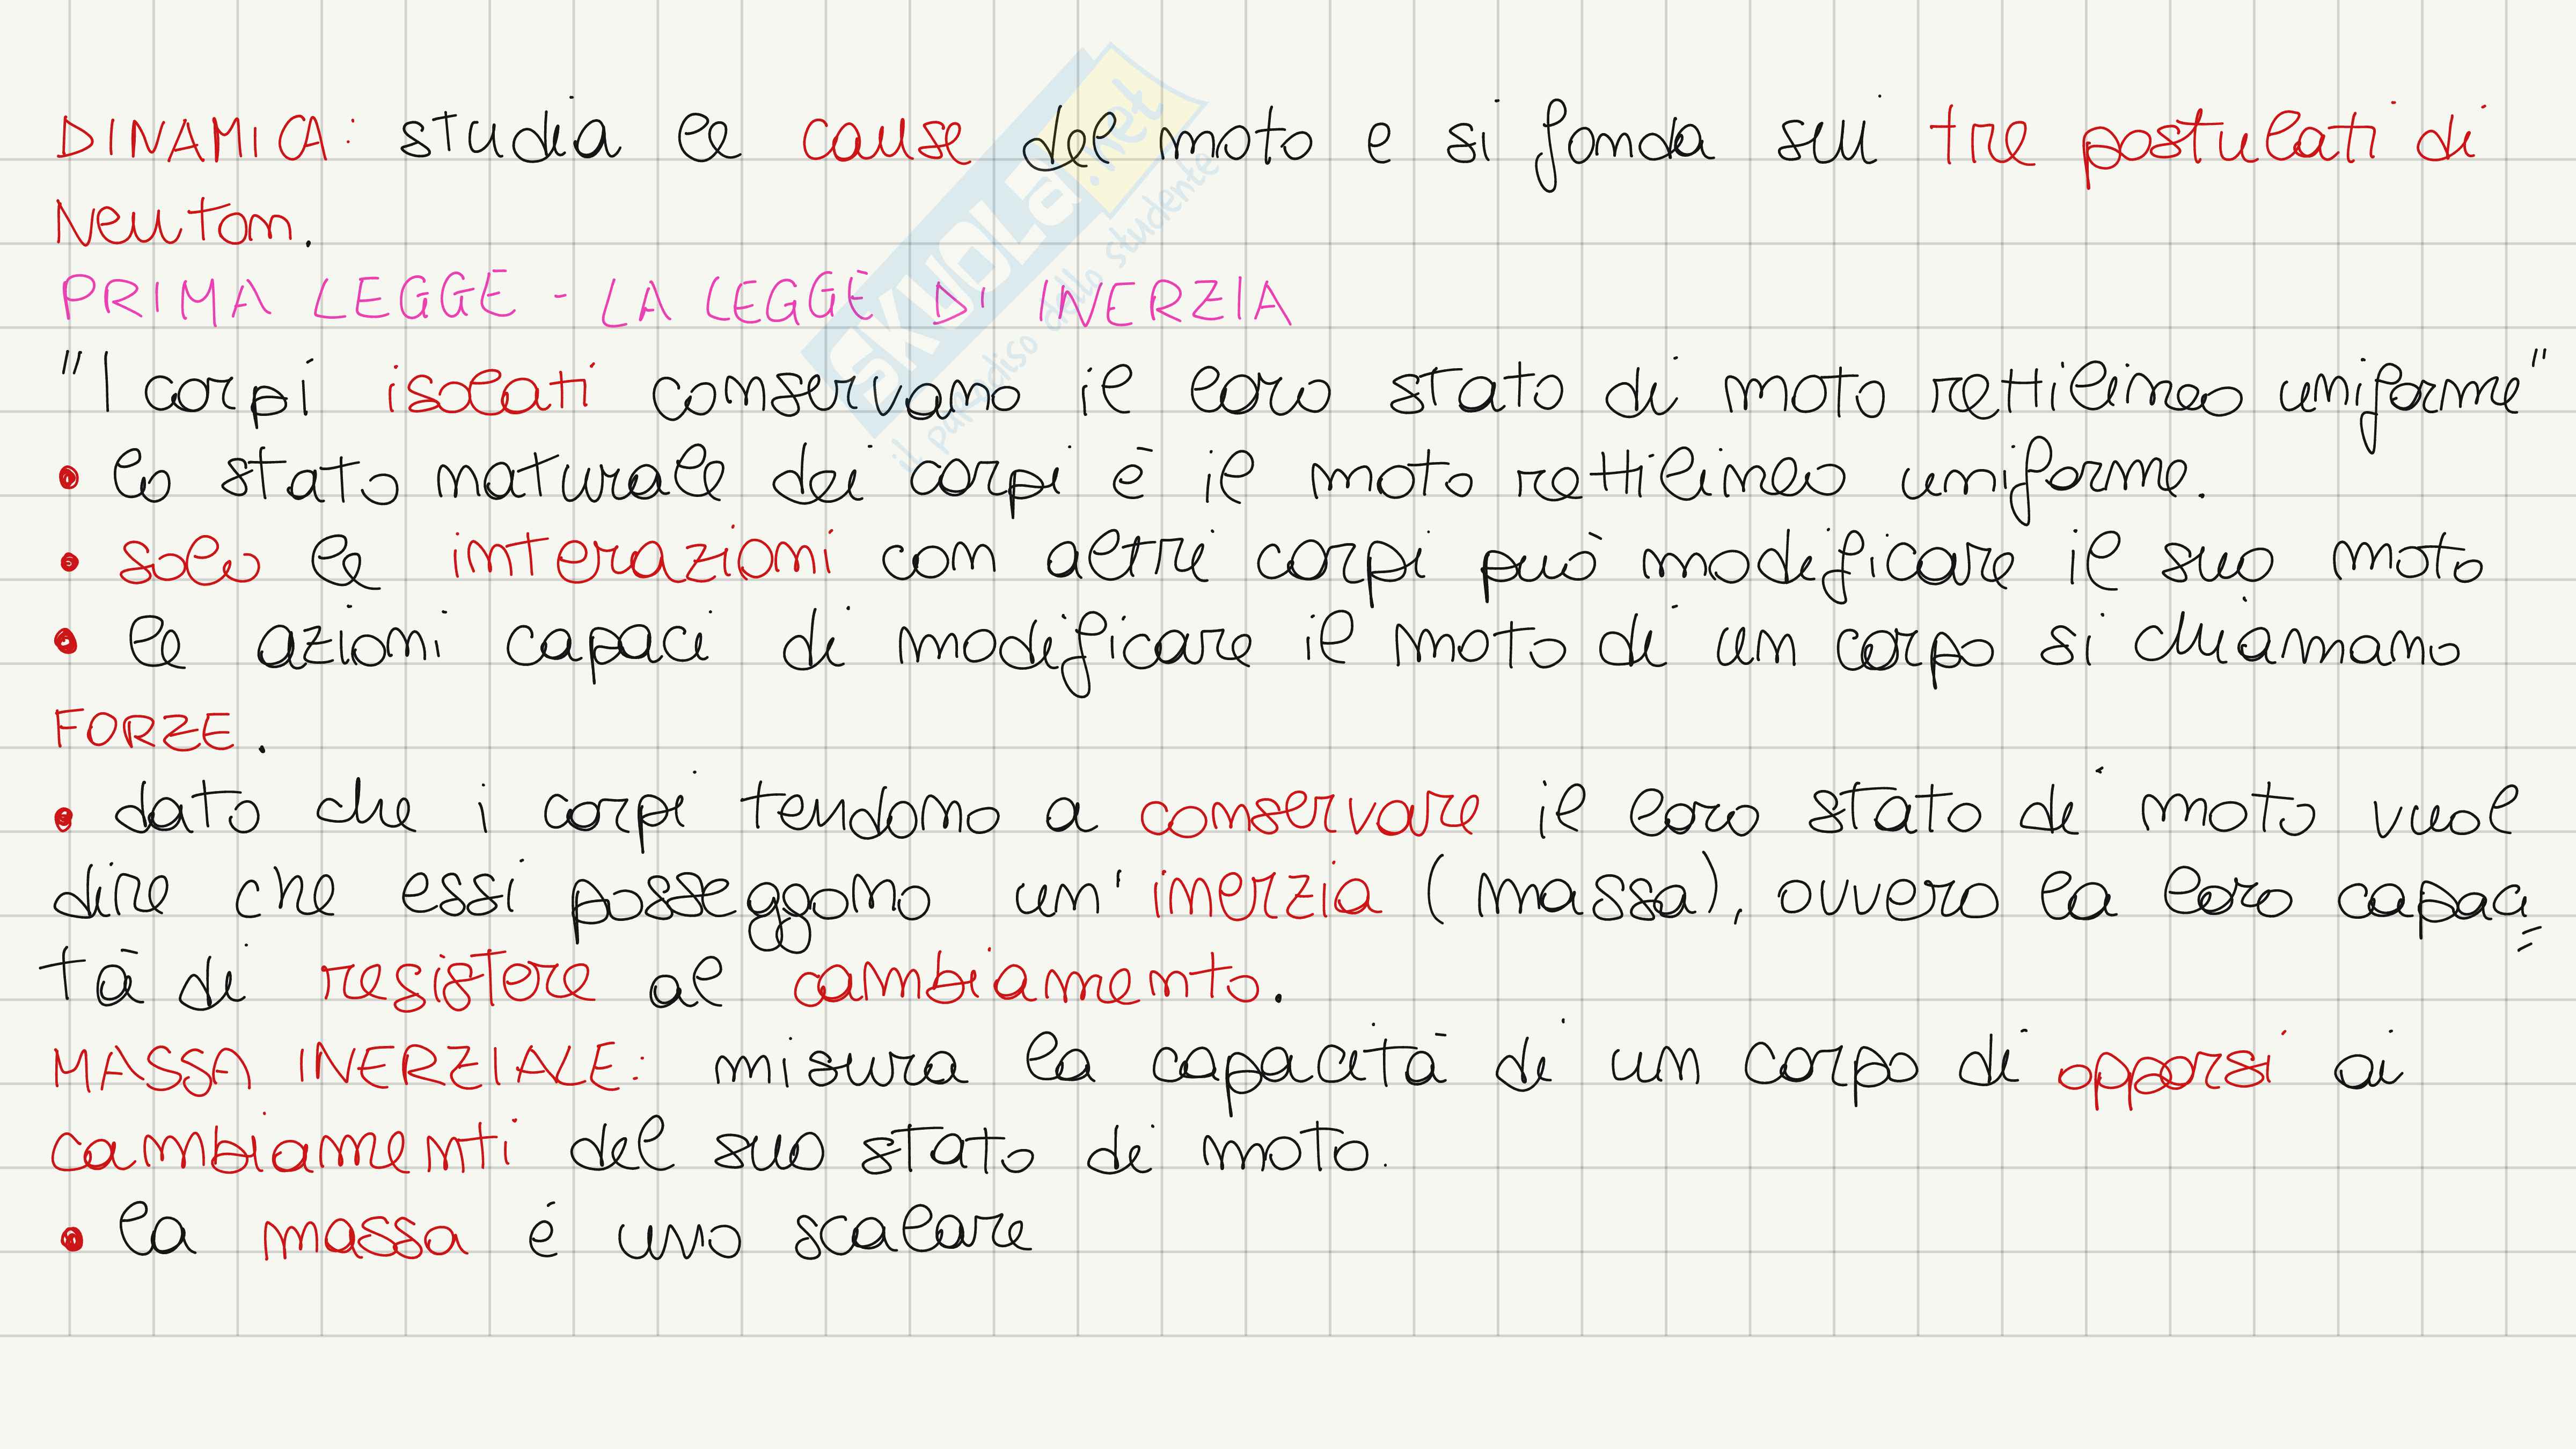 DINAMICA: studia le cause del moto e si fonda sui tre postulati di
Newton.
PRIMA LEGGE - LA LEGGE DI INERZIA
"I corpi isolati conservano il loro stato di moto rettilineo uniforme"
• lo stato naturale dei corpi è il moto rettilineo uniforme.
• solo le interazioni con altri corpi può modificare il suo moto
• le azioni capaci di modificare il moto di un corpo si chiamano
FORZE.
• dato che i corpi tendono a conservare il loro stato di moto vuol
dire che essi posseggono un' inerzia (massa), ovvero la loro capaci=
tà di resistere al cambiamento.
MASSA INERZIALE: misura la capacità di un corpo di opporsi ai
cambiamenti del suo stato di moto.
• la massa é uno scalare
SKUOLA.net
il paradiso dello studente